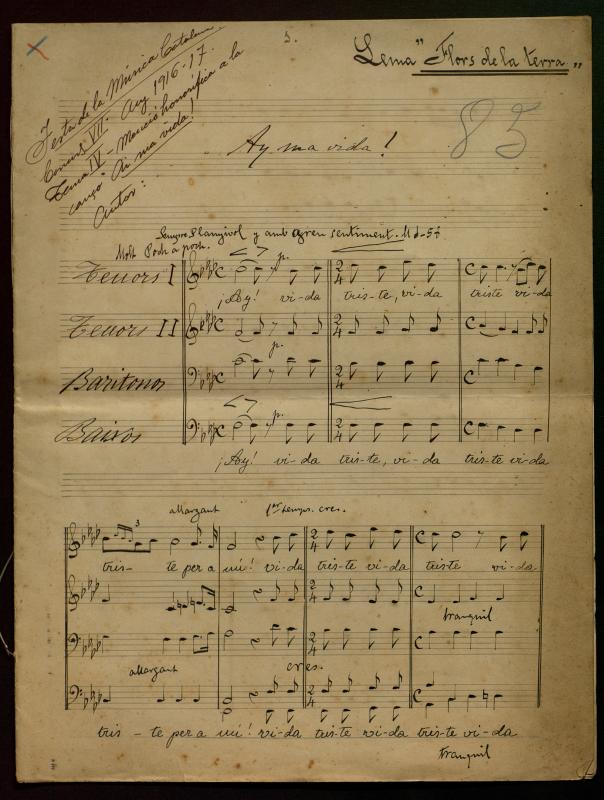 Festa de la Música Catalana
Concurs VII. Any 1916-17.
Tema IV - Menció honorífica a la
cançó "Ai ma vida!
Autor:
1.
Lema "Flors de la terra"
85
Ay ma vida!
Sempre Planyivol y amb greu sentiment.
Molt Poch a poch.
p.
Tenors I
¡Ay! vi-da tris-te, vi-da triste vi-da
Tenors II
p.
Baritonos
p.
Baixos
¡Ay! vi-da tris-te, vi-da tris-te vi-da
allargant 1er temps. cres.
3
tris- te per a mi! vi-da tris-te vi-da triste vi-da
tranquil
allargant cres.
tris - te per a mi! vi-da tris-te vi-da tris-te vi-da
tranquil